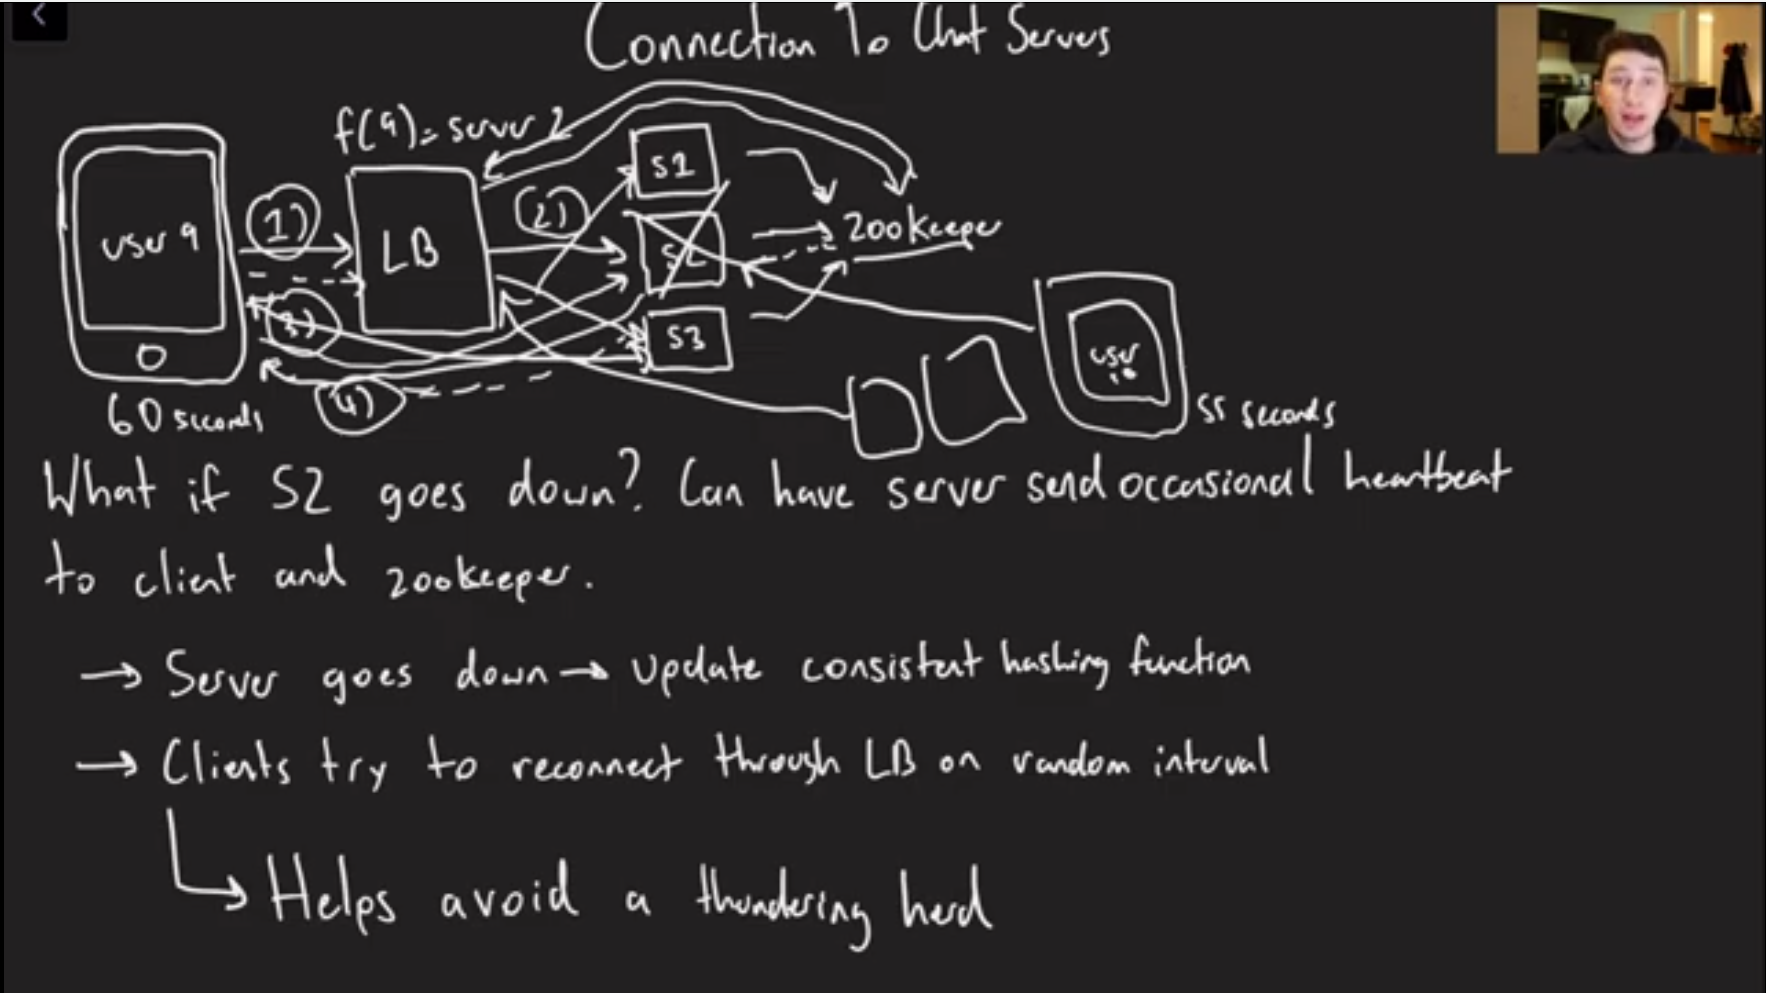 Connection To Chat Servers
f(9) = server 2
S1
1)
2)
user 9
LB
S2
zookeeper
3)
S3
user 10
4)
60 seconds
55 seconds
What if S2 goes down? Can have server send occasional heartbeat
to client and zookeeper.
→ Server goes down → update consistent hashing function
→ Clients try to reconnect through LB on random interval
↳ Helps avoid a thundering herd